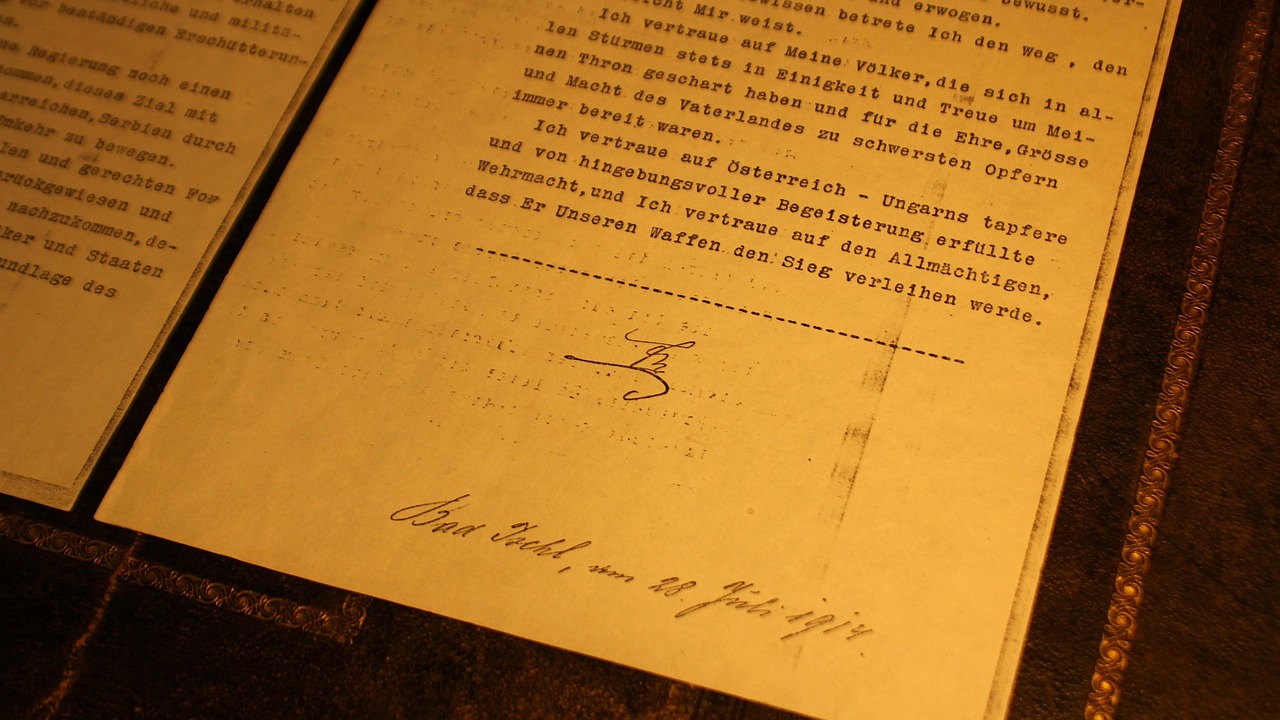 erhalten
liche und militä-
vor beständigen Erschütterun-
Regierung noch einen
kommen, dieses Ziel mit
erreichen, Serbien durch
Umkehr zu bewegen.
len und gerechten For
zurückgewiesen und
nachzukommen, de-
ker und Staaten
undlage des
bewusst.
und erwogen.
wissen betrete Ich den Weg, den
Mir weist.
Ich vertraue auf Meine Völker, die sich in al-
len Stürmen stets in Einigkeit und Treue um Mei-
nen Thron geschart haben und für die Ehre, Grösse
und Macht des Vaterlandes zu schwersten Opfern
immer bereit waren.
Ich vertraue auf Österreich - Ungarns tapfere
und von hingebungsvoller Begeisterung erfüllte
Wehrmacht, und Ich vertraue auf den Allmächtigen,
dass Er Unseren Waffen den Sieg verleihen werde.
Bad Ischl, am 28. Juli 1914.